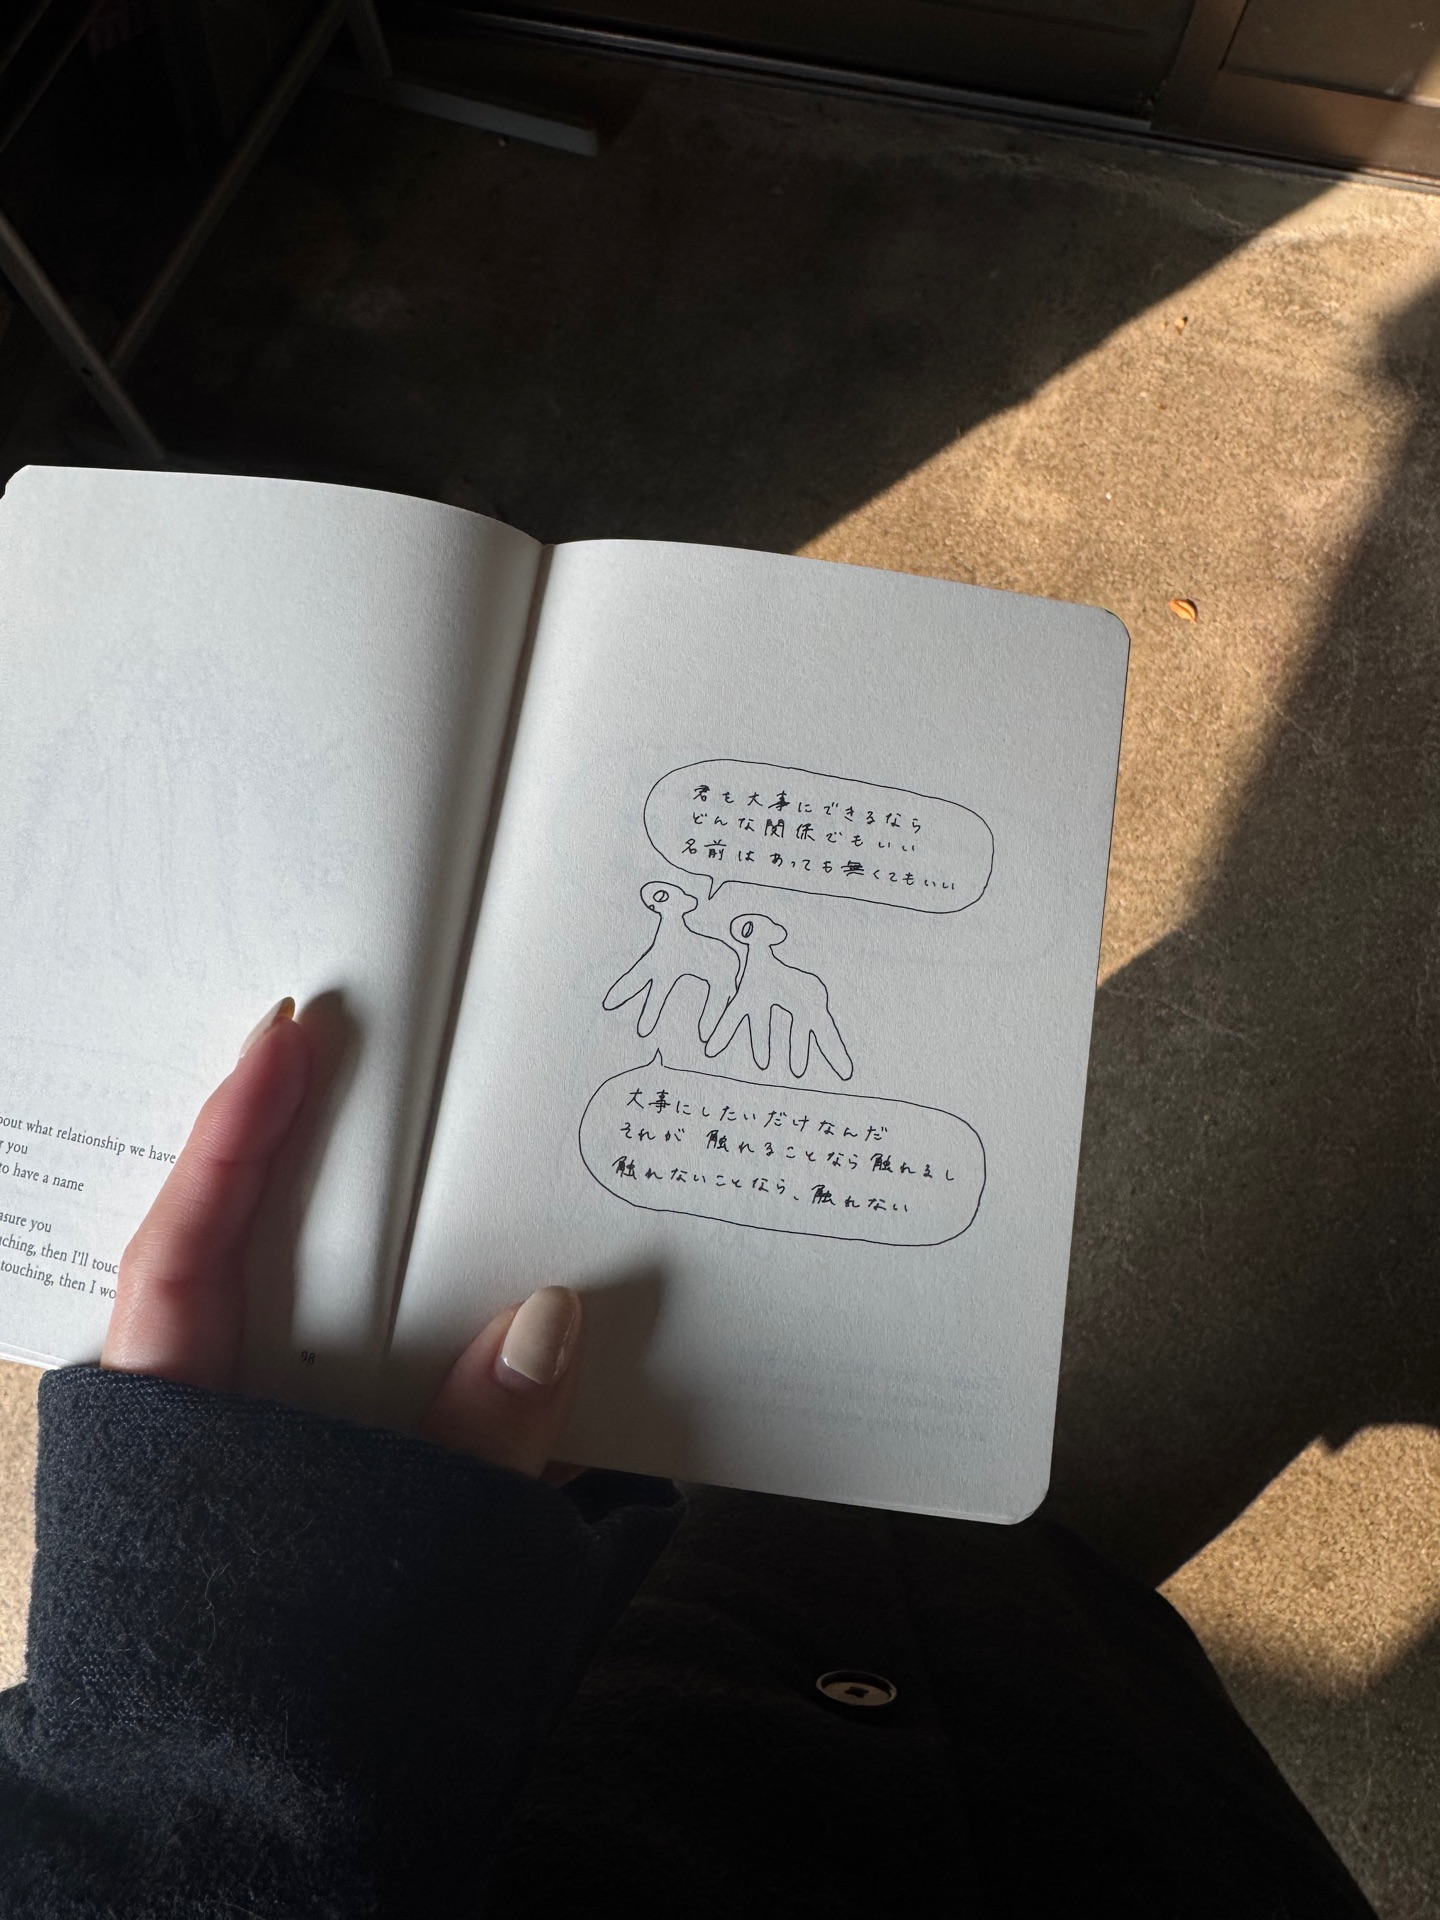 bout what relationship we have
r you
to have a name
asure you
ching, then I'll touc
touching, then I wo
98
君を大事にできるなら
どんな関係でもいい
名前はあっても無くてもいい
大事にしたいだけなんだ
それが触れることなら触れるし
触れないことなら、触れない